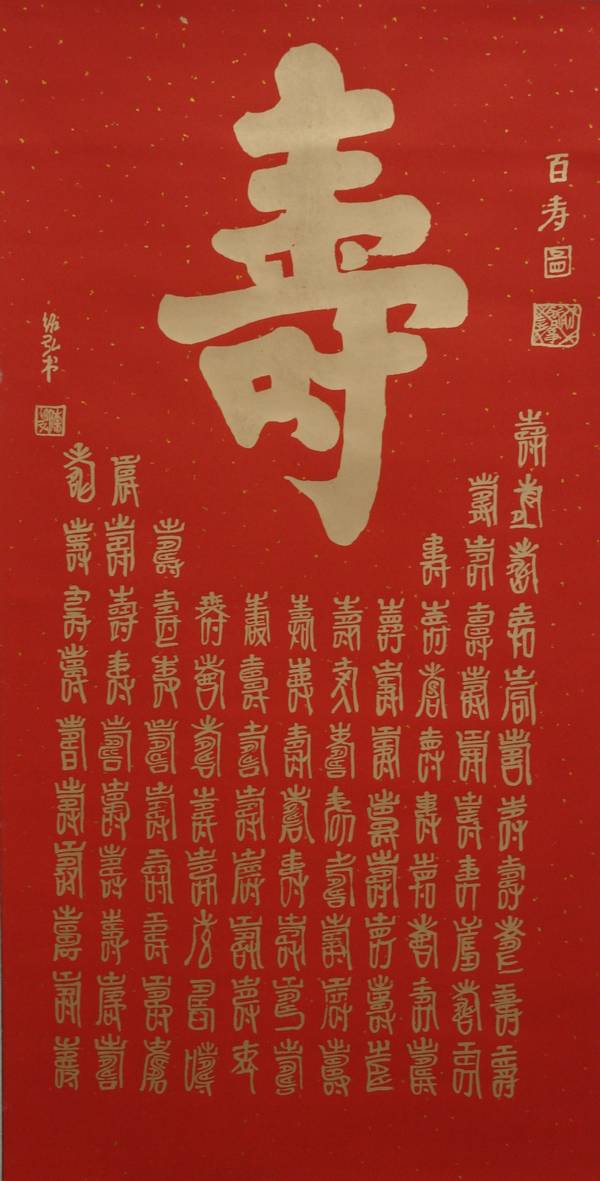 百寿圖
壽
壽壽壽壽壽壽壽壽壽壽壽
壽壽壽壽壽壽壽壽壽壽
壽壽壽壽壽壽壽壽壽
壽壽壽壽壽壽壽壽
壽壽壽壽壽壽壽壽
壽壽壽壽壽壽壽壽
壽壽壽壽壽壽壽壽
壽壽壽壽壽壽壽壽
壽壽壽壽壽壽壽壽壽
壽壽壽壽壽壽壽壽壽壽
壽壽壽壽壽壽壽壽壽壽
绍弘书